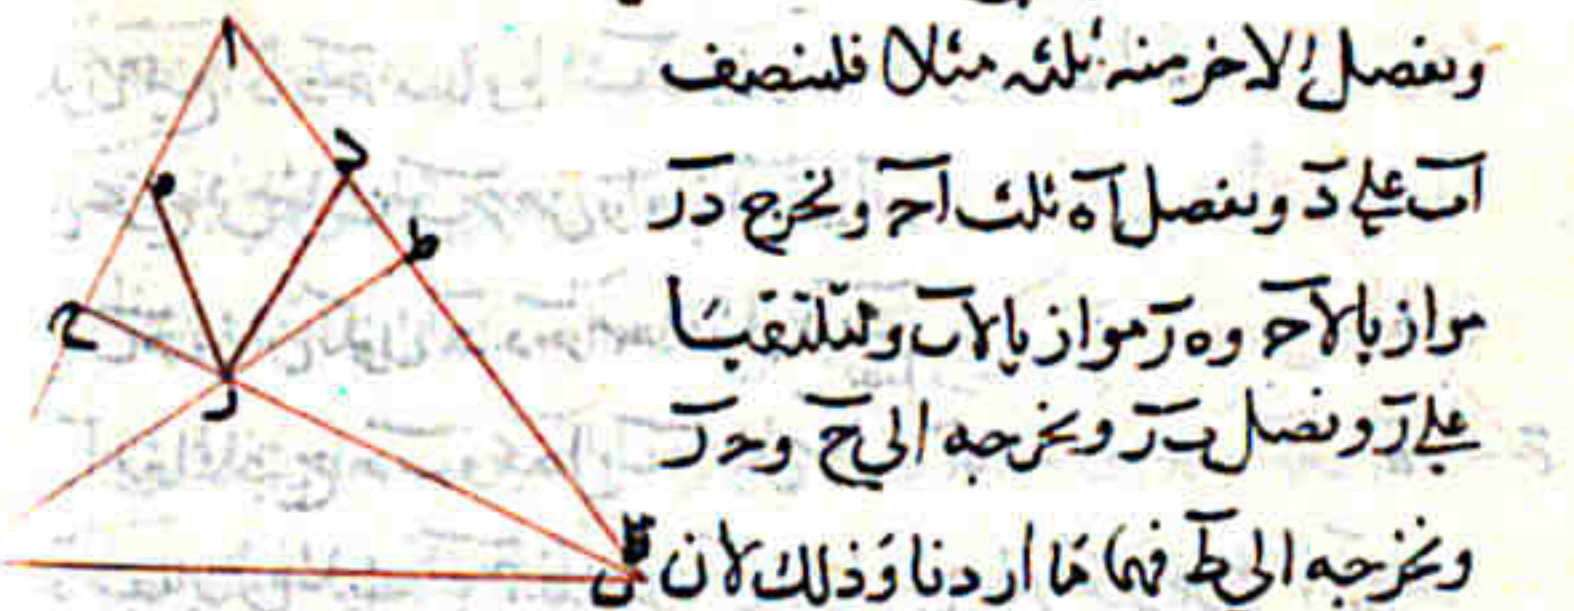 ونفصل الاخر منه ثلثه مثلا فلننصف
اب على د ونفصل اه ثلث اح ونخرج در
موازيا لاح وه ر موازيا لاب وليلتقيا
على ر ونصل ب ر ونخرجه الى ح وحر
ونخرجه الى ط فهما ما اردنا وذلك لان
ا
د
ه
ط
ح
ر